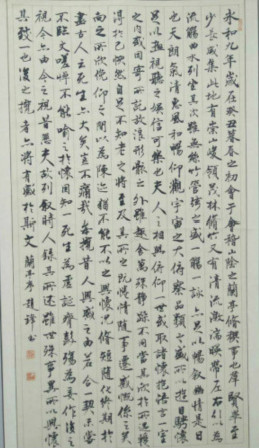 永和九年歲在癸丑暮春之初會于會稽山陰之蘭亭修禊事也群賢畢至
少長咸集此地有崇山峻領茂林脩竹又有清流激湍暎帶左右引以為
流觴曲水列坐其次雖無絲竹管弦之盛一觴一詠亦足以暢敘幽情是日
也天朗氣清惠風和暢仰觀宇宙之大俯察品類之盛所以遊目騁懷
足以極視聽之娛信可樂也夫人之相與俯仰一世或取諸懷抱悟言一室
之內或因寄所託放浪形骸之外雖趣舍萬殊靜躁不同當其欣於所遇暫
得於己快然自足不知老之將至及其所之既惓情隨事遷感慨係之矣
向之所欣俛仰之間以為陳迹猶不能不以之興懷況脩短隨化終期於
盡古人云死生亦大矣豈不痛哉每攬昔人興感之由若合一契未嘗
不臨文嗟悼不能喻之於懷固知一死生為虛誕齊彭殤為妄作後之
視今亦由今之視昔悲夫故列敘時人錄其所述雖世殊事異所以興懷
其致一也後之攬者亦將有感於斯文 蘭亭序 書